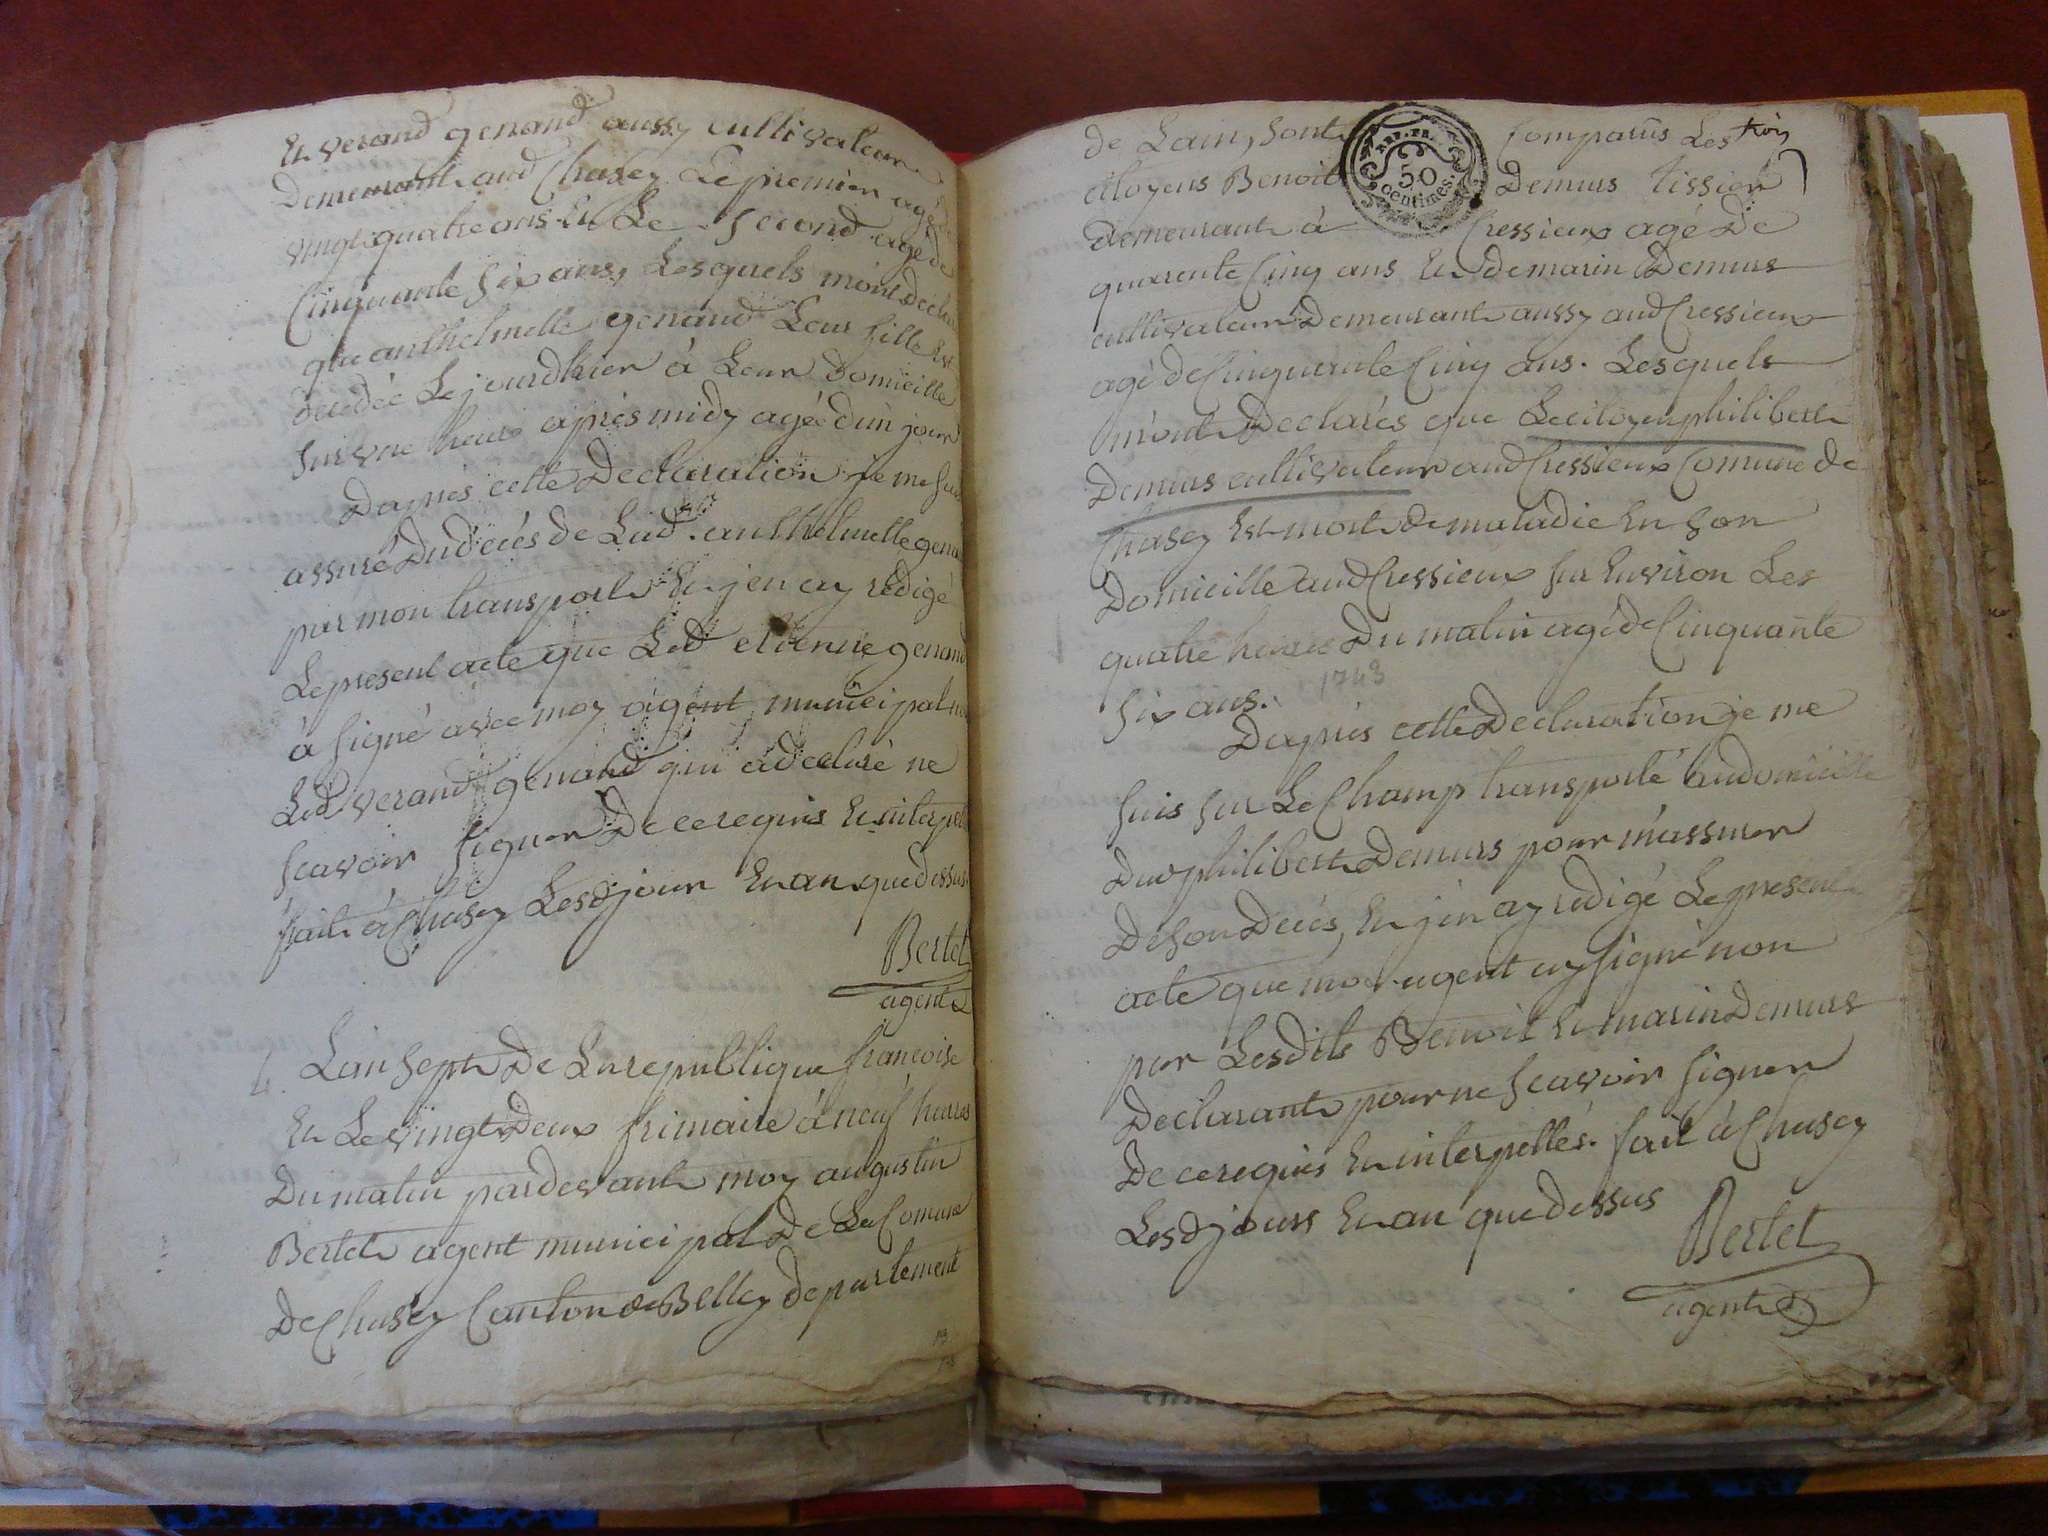 Et verand genand aussy cultivateur
Demeurant aud Chasey Le premier agé de
vingt quatre ans Et Le second agé de
Cinquante six ans, Lesquels m'ont declaré
que anthelmette genand Leur fille Est
decedée Le jourdhier à Leur Domicille
sur une heure apres midy agée d'un jour
D'apres cette Declaration je me suis
assuré Du decés de Lad. anthelmette genand
par mon transport Et j'en ay rédigé
Le present acte que Led etienne genand
à signé avec moy agent municipal non
Led verand genand qui a declaré ne
scavoir signer De ce requis Et interpellé
fait à Chasey Lesd jour Et an que dessus.
Bertet
agent
L'an sept De La republique francoise
Et Le vingt Deux frimaire à neuf heures
Du matin pardevant moy augustin
Bertet agent municipal De La Comune
De Chasey Canton de Belley departement
de Lain, sont comparus Les trois
REP. FR.
50
centimes.
citoyens Benoit Demurs tissier
demeurant à Cressieux agé De
quarente cinq ans Et de marin Demurs
cultivateur Demeurant aussy aud Cressieux
agé de Cinquante Cinq ans. Lesquels
m'ont Declarés que Le citoyen philibert
Demurs cultivateur aud Cressieux Comune de
Chasey Est mort de maladie En son
Domicille aud Cressieux sur Environ Les
quatre heures Du matin agé de Cinquante
six ans. 1743
D'apres cette Declaration je me
suis sur Le Champ transporté au domicille
Dud philibert Demurs pour m'assurer
De son Decés, Et j'en ay redigé Le present
acte que moi agent ay signé non
par Lesdits Benoit Et marin Demurs
Declarants pour ne scavoir signer
De ce requis Et interpellés. fait à Chasey
Lesd jours Et an que dessus
Bertet
agent